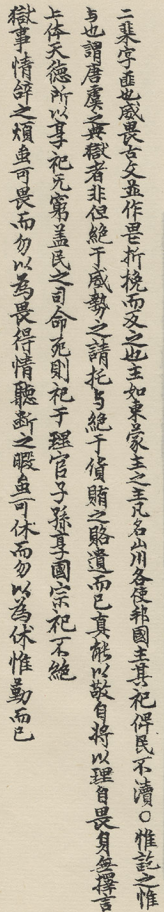 二棐字匪也威畏古文並作畏折挽而文之也主如東蒙主之主凡名山川各使邦國主其祀俾民不瀆○惟訖之惟
与也謂唐虞之典獄者非但絶于威勢之請托与絶于貨賄之賂遺而已真能以敬自將以理自畏身無擇言
上体天德所以享祀无窮盖民之司命死則祀于理官子孫享國宗祀不絶
獄事情辝之煩虽可畏而勿以為畏得情聽斷之暇虽可休而勿以為休惟勤而已